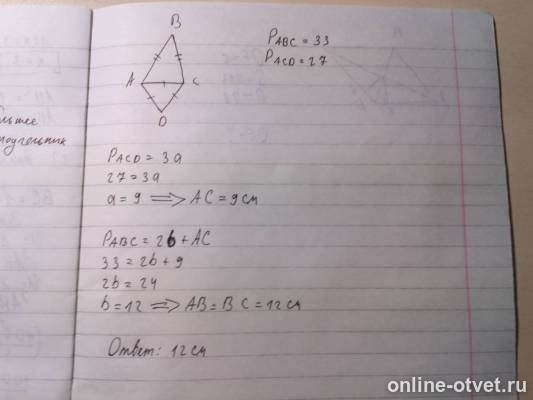 B
A
C
D
P_ABC = 33
P_ACD = 27
P_ACD = 3a
27 = 3a
a = 9 ⟹ AC = 9 см
P_ABC = 2b + AC
33 = 2b + 9
2b = 24
b = 12 ⟹ AB = BC = 12 см
Ответ: 12 см
online-otvet.ru